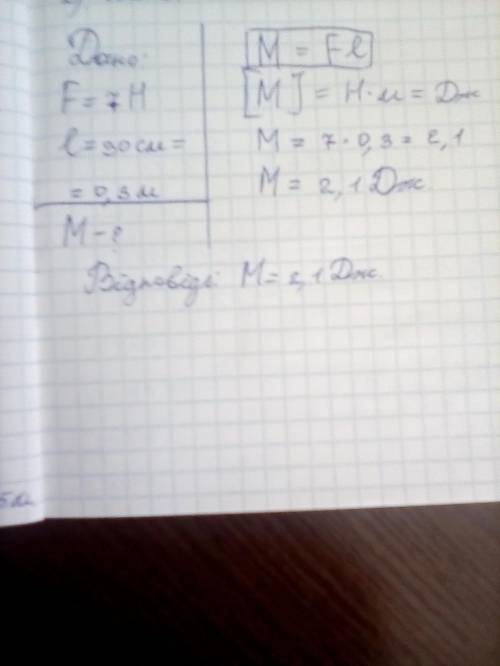 Дано:
F = 7 Н
l = 30 см =
= 0,3 м
М - ?
М = Fl
[М] = Н·м = Дж
М = 7 · 0,3 = 2,1
М = 2,1 Дж
Відповідь: М = 2,1 Дж